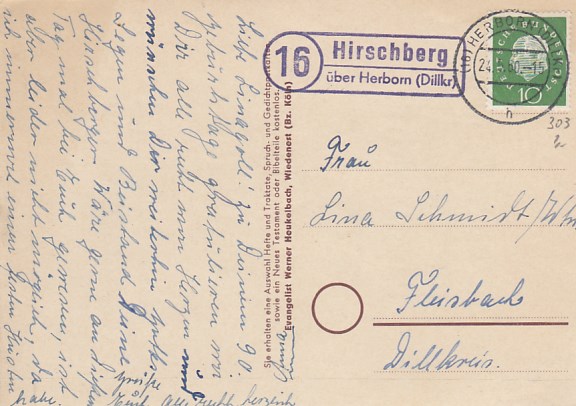 Liebe Linagoll! zu Deinem 90
Geburtstage gratulieren wir
Dir alle recht von Herzen und
wünschen Dir weiterhin Gottes
Segen und Beistand. Deine
Hirschberger. Wäre gerne an diesem
Tag mal bei Euch gewesen, ist
aber leider nicht möglich, da
ich immer einen
habe.
Grüße
Euch alle recht herzlich
Sie erhalten eine Auswahl Hefte und Traktate, Spruch- und Gedichtpostkarten
sowie ein Neues Testament oder Bibelteile kostenlos.
Evangelist Werner Heukelbach, Wiedenest (Bz. Köln)
16 Hirschberg
über Herborn (Dillkr)
(16) HERBORN
24.5.60-15
h
DEUTSCHE BUNDESPOST
10
303
Frau
Lina Schmidt/Ww
Fleisbach
Dillkreis.